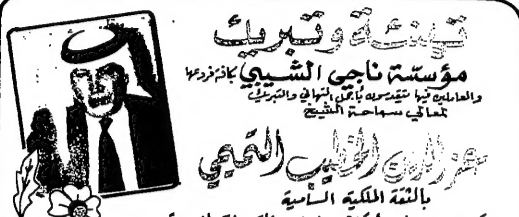 تهنئة وتبريك
مؤسسة ناجي الشيبي بكافة فروعها
والعاملين فيها يتقدمون بأجمل التهاني والتبريك
لمعالي سماحة الشيخ
عز الدين الخطيب التميمي
بالثقة الملكية السامية